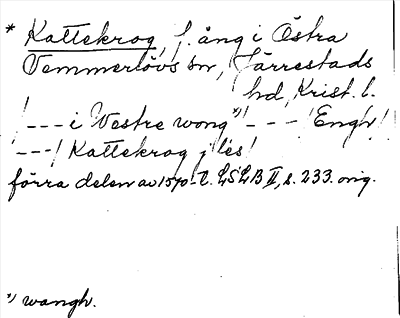 * Kattekrog, f. äng i Östra
Vemmerlövs sn, Järrestads
hd, Krist. l.
/--- i Vestre wong*)/--- /Engh/
---/ Kattekrog j lés/
förra delen av 1570-t. LSLB II, s. 233. orig.
*) wangh.